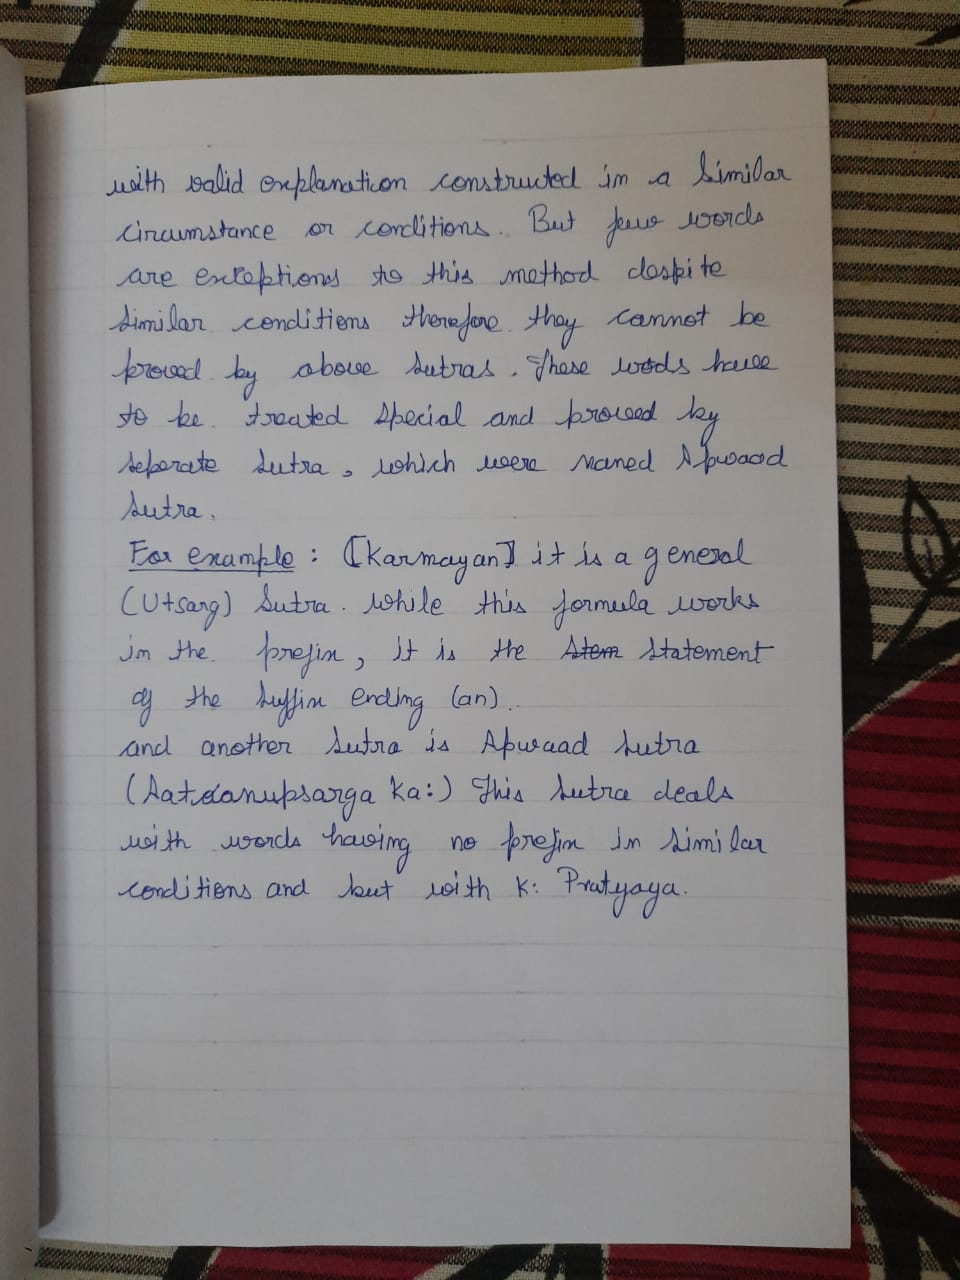 with valid explanation constructed in a similar
circumstance or conditions. But few words
are exceptions to this method despite
similar conditions therefore they cannot be
proved by above sutras. These wods have
to be treated special and proved by
seperate sutra, which were named Apwaad
sutra.
For example: [Karmayan] it is a general
(Utsarg) Sutra. while this formula works
in the prefix, it is the Stem statement
of the suffix ending (an).
and another sutra is Apwaad sutra
(Aatdanupsarga Ka:) This sutra deals
with words having no prefix in similar
conditions and but with K: Pratyaya.